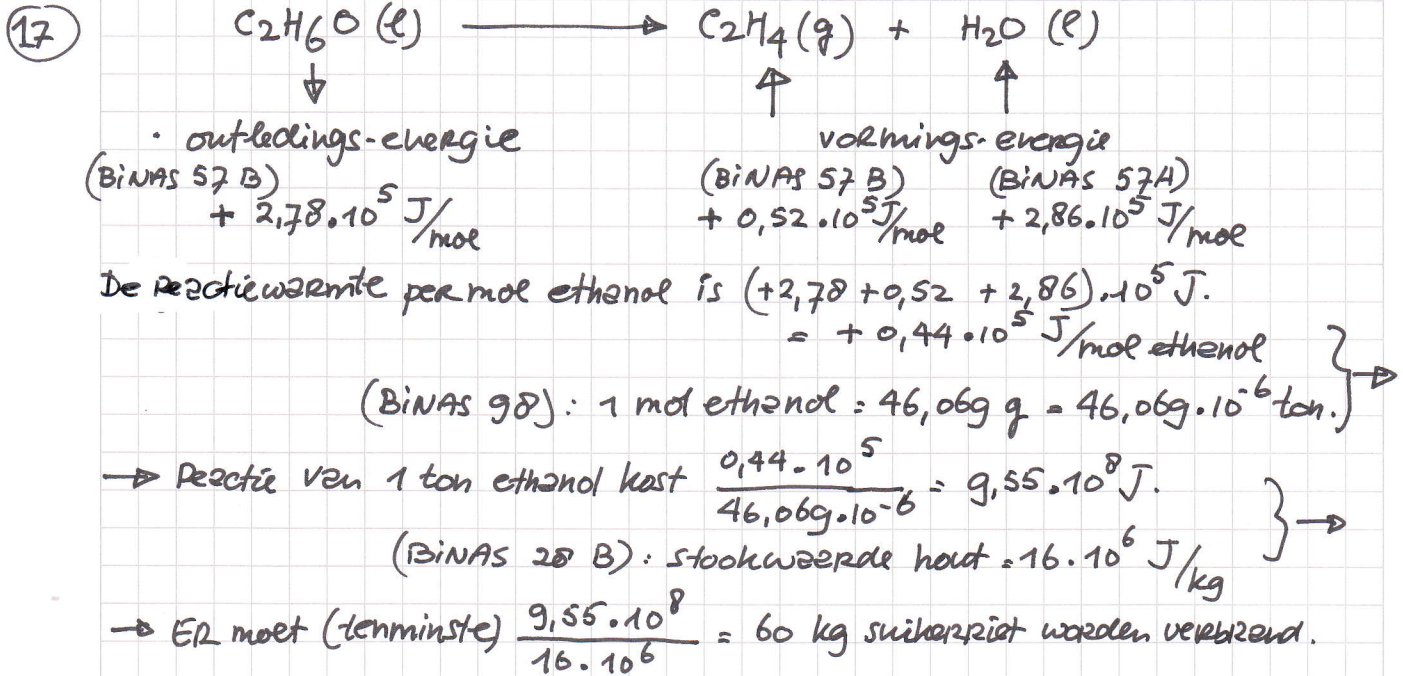 17 C2H6O (l) → C2H4 (g) + H2O (l)
• ontledings-energie vormings-energie
(BiNAS 57 B) (BiNAS 57 B) (BiNAS 57A)
+ 2,78.10^5 J/mol + 0,52.10^5 J/mol + 2,86.10^5 J/mol
De reactiewarmte per mol ethanol is (+2,78 +0,52 +2,86).10^5 J.
= + 0,44.10^5 J/mol ethanol
(BiNAS 98): 1 mol ethanol = 46,069 g = 46,069.10^-6 ton. →
→ Reactie van 1 ton ethanol kost 0,44.10^5 / 46,069.10^-6 = 9,55.10^8 J.
(BiNAS 28 B): stookwaarde hout = 16.10^6 J/kg →
→ ER moet (tenminste) 9,55.10^8 / 16.10^6 = 60 kg suikerriet worden verbrand.